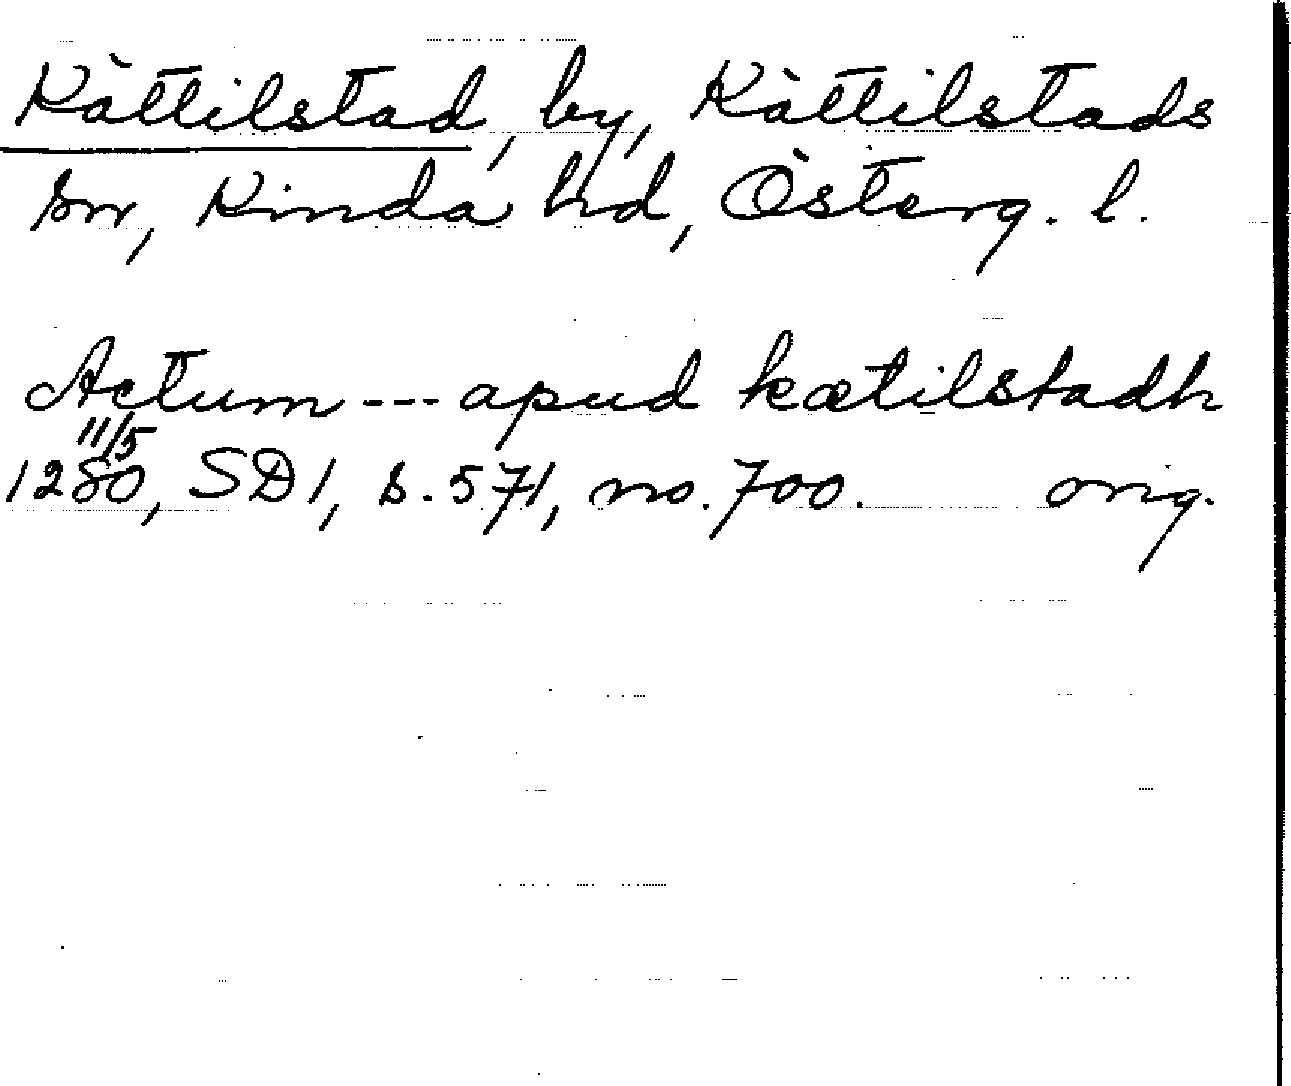 Kättilstad, by, Kättilstads
sn, Kinda hd, Österg. l.
Actum --- apud kætilstadh
11/5
1280, SD1, s. 571, no. 700. orig.